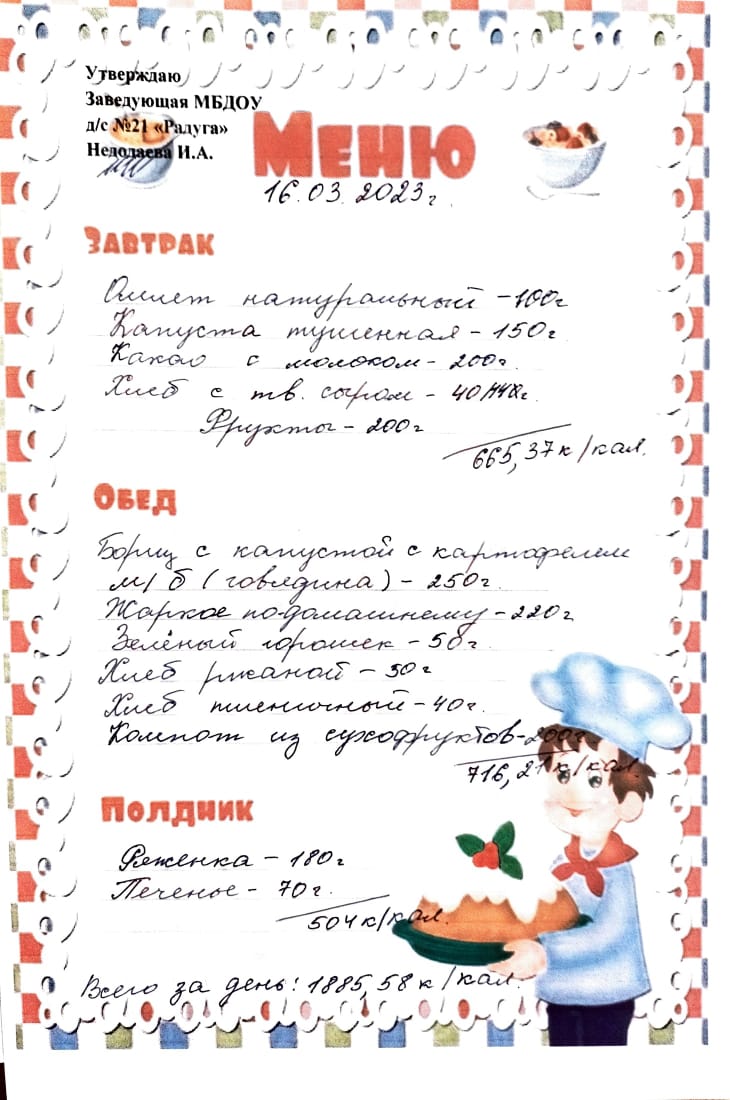 Утверждаю
Заведующая МБДОУ
д/с №21 «Радуга»
Недодаева И.А.
Меню
16.03.2023г.
Завтрак
Омлет натуральный - 100г
Капуста тушенная - 150г
Какао с молоком - 200г.
Хлеб с тв. сыром -
Фрукты - 200г
665,37 к/кал.
Обед
Борщ с капустой с картофелем
м/б (говядина) - 250г.
Жаркое по-домашнему - 220г
Зелёный горошек - 50г.
Хлеб ржаной - 50г
Хлеб пшеничный - 40г.
Компот из сухофруктов - 200г
716,21 к/кал.
Полдник
Ряженка - 180г
Печенье - 70г.
504 к/кал.
Всего за день: 1885,58 к/кал.